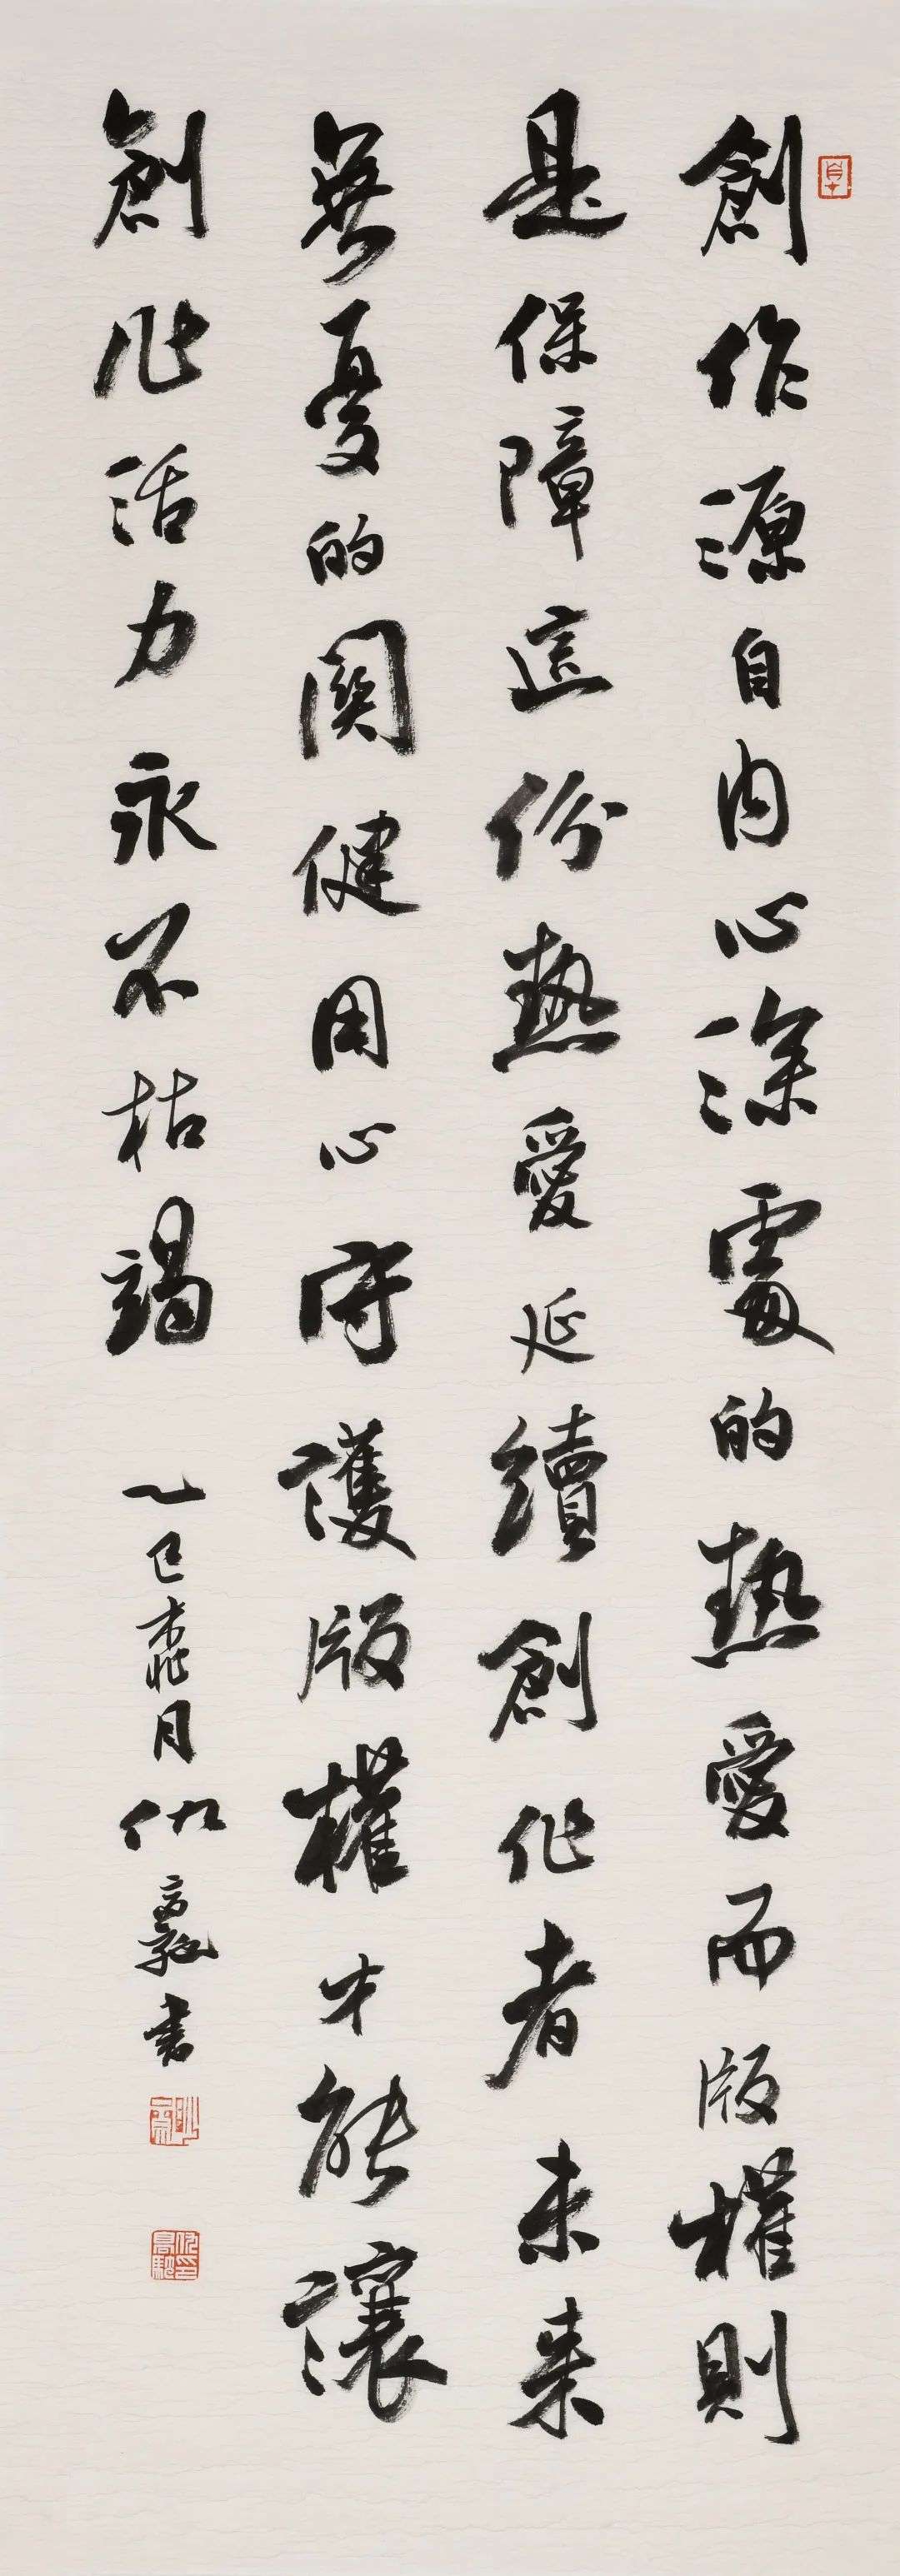 創作源自内心深處的熱愛而版權則
是保障這份熱愛延續創作者未来
無憂的関健用心守護版權才能讓
創作活力永不枯竭
乙巳 月仇高馳書